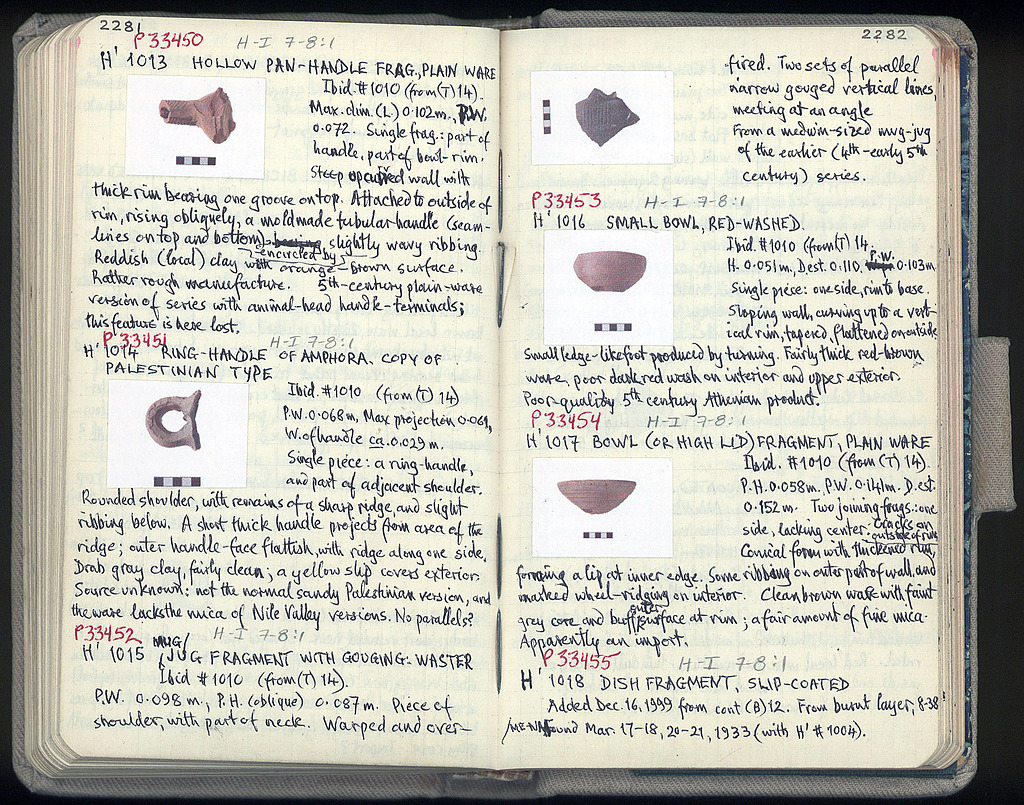 2281
P33450 H-I 7-8:1
H' 1013 HOLLOW PAN-HANDLE FRAG., PLAIN WARE
Ibid. #1010 (from (T) 14).
Max. dim. (L) 0.102 m., P.W.
0.072. Single frag.: part of
handle, part of bowl-rim.
Steep curved wall with
thick rim bearing one groove on top. Attached to outside of
rim, rising obliquely, a moldmade tubular handle (seam-
lines on top and bottom), encircled by slightly wavy ribbing.
Reddish (local) clay with orange-brown surface.
Rather rough manufacture. 5th-century plain-ware
version of series with animal-head handle-terminals;
this feature is here lost.
P33451 H-I 7-8:1
H' 1014 RING-HANDLE OF AMPHORA. COPY OF
PALESTINIAN TYPE
Ibid. #1010 (from (T) 14)
P.W. 0.068 m, Max projection 0.061,
W. of handle ca. 0.029 m.
Single piece: a ring-handle,
and part of adjacent shoulder.
Rounded shoulder, with remains of a sharp ridge, and slight
ribbing below. A short thick handle projects from area of the
ridge; outer handle-face flattish, with ridge along one side.
Drab gray clay, fairly clean; a yellow slip covers exterior.
Source unknown: not the normal sandy Palestinian version, and
the ware lacks the mica of Nile Valley versions. No parallels?
P33452 H-I 7-8:1
H' 1015 MUG/JUG FRAGMENT WITH GOUGING. WASTER
Ibid #1010 (from (T) 14).
P.W. 0.098 m., P.H. (oblique) 0.087 m. Piece of
shoulder, with part of neck. Warped and over-
2282
fired. Two sets of parallel
narrow gouged vertical lines,
meeting at an angle
From a medium-sized mug-jug
of the earlier (4th-early 5th
century) series.
P33453 H-I 7-8:1
H' 1016 SMALL BOWL, RED-WASHED.
Ibid. #1010 (from (T) 14.
H. 0.051 m, D est. 0.110, P.W. 0.103 m
Single piece: one side, rim to base.
Sloping wall, curving up to a vert-
ical rim, tapered, flattened on outside.
Small ledge-like foot produced by turning. Fairly thick red-brown
ware, poor dark red wash on interior and upper exterior.
Poor-quality 5th century Athenian product.
P33454 H-I 7-8:1
H' 1017 BOWL (OR HIGH LID) FRAGMENT, PLAIN WARE
Ibid. #1010 (from (T) 14).
P.H. 0.058 m, P.W. 0.141 m. D. est.
0.152 m. Two joining frags.: one
side, lacking center. Cracks on outside of rim
Conical form with thickened rim,
forming a lip at inner edge. Some ribbing on outer part of wall, and
marked wheel-ridging on interior. Clean brown ware with faint
grey core and buff outer surface at rim; a fair amount of fine mica.
Apparently an import.
P33455 H-I 7-8:1
H' 1018 DISH FRAGMENT, SLIP-COATED
Added Dec. 16, 1999 from cont (B) 12. From burnt layer, 8-38:
found Mar. 17-18, 20-21, 1933 (with H' #1004).